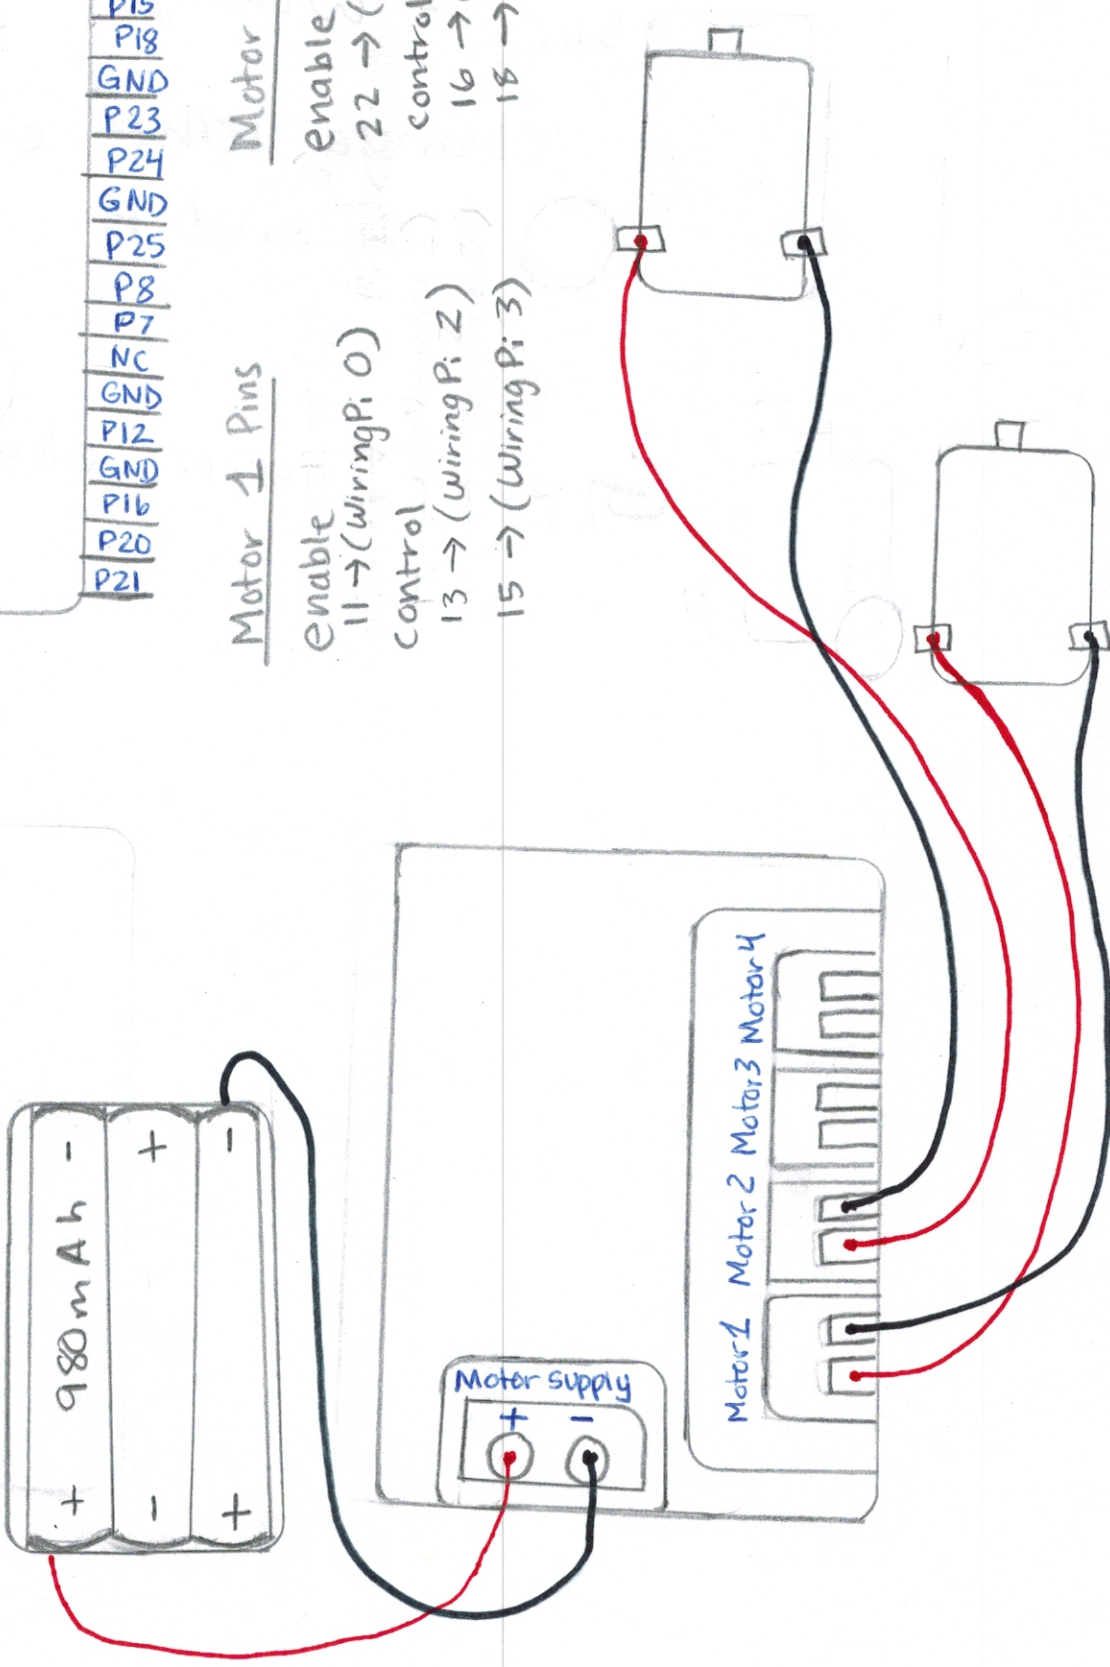 P15
P18
GND
P23
P24
GND
P25
P8
P7
NC
GND
P12
GND
P16
P20
P21
Motor
enable
22 → (
control
16 →
18 →
Motor 1 Pins
enable
11 → (WiringPi 0)
control
13 → (WiringPi 2)
15 → (WiringPi 3)
- + -
980mAh
+ - +
Motor supply
+ -
Motor1 Motor2 Motor3 Motor4